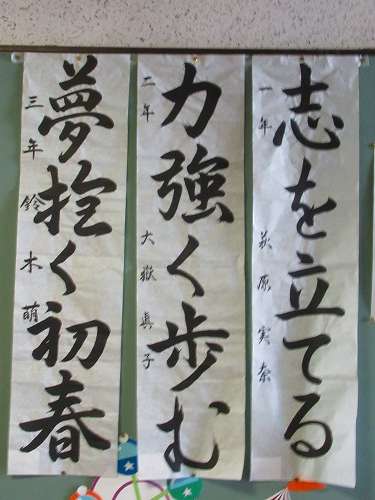 志を立てる
一年 荻原実奈
力強く歩む
二年 大嶽真子
夢抱く初春
三年 鈴木萌